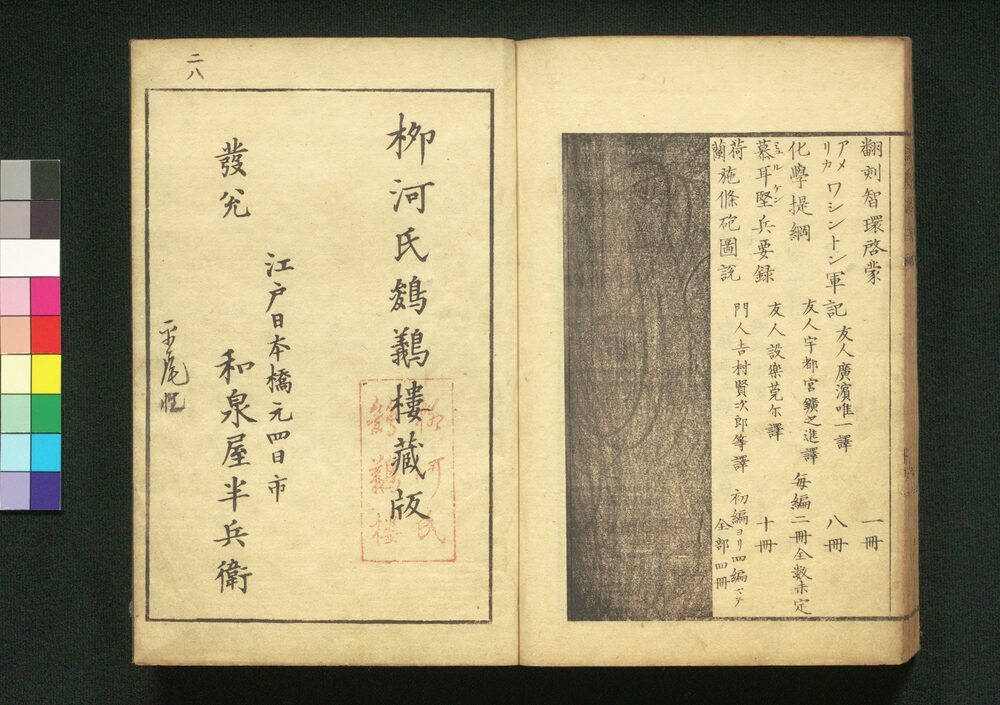 翻刻智環啓蒙 一冊
アメリカ ワシントン軍記 友人廣瀬唯一譯 八冊
化學提綱 友人宇都宮鑛之進譯 每編二冊全數未定
慕耳堅兵要録 ミュルケン 友人設樂莞尓譯 十冊
荷蘭施條砲圖説 門人吉村賢次郎等譯 初編ヨリ四編マテ全部四冊
二八
柳河氏鷧鷀樓藏版
柳河氏
樓
發兌
江戸日本橋元四日市
和泉屋半兵衛
平尾